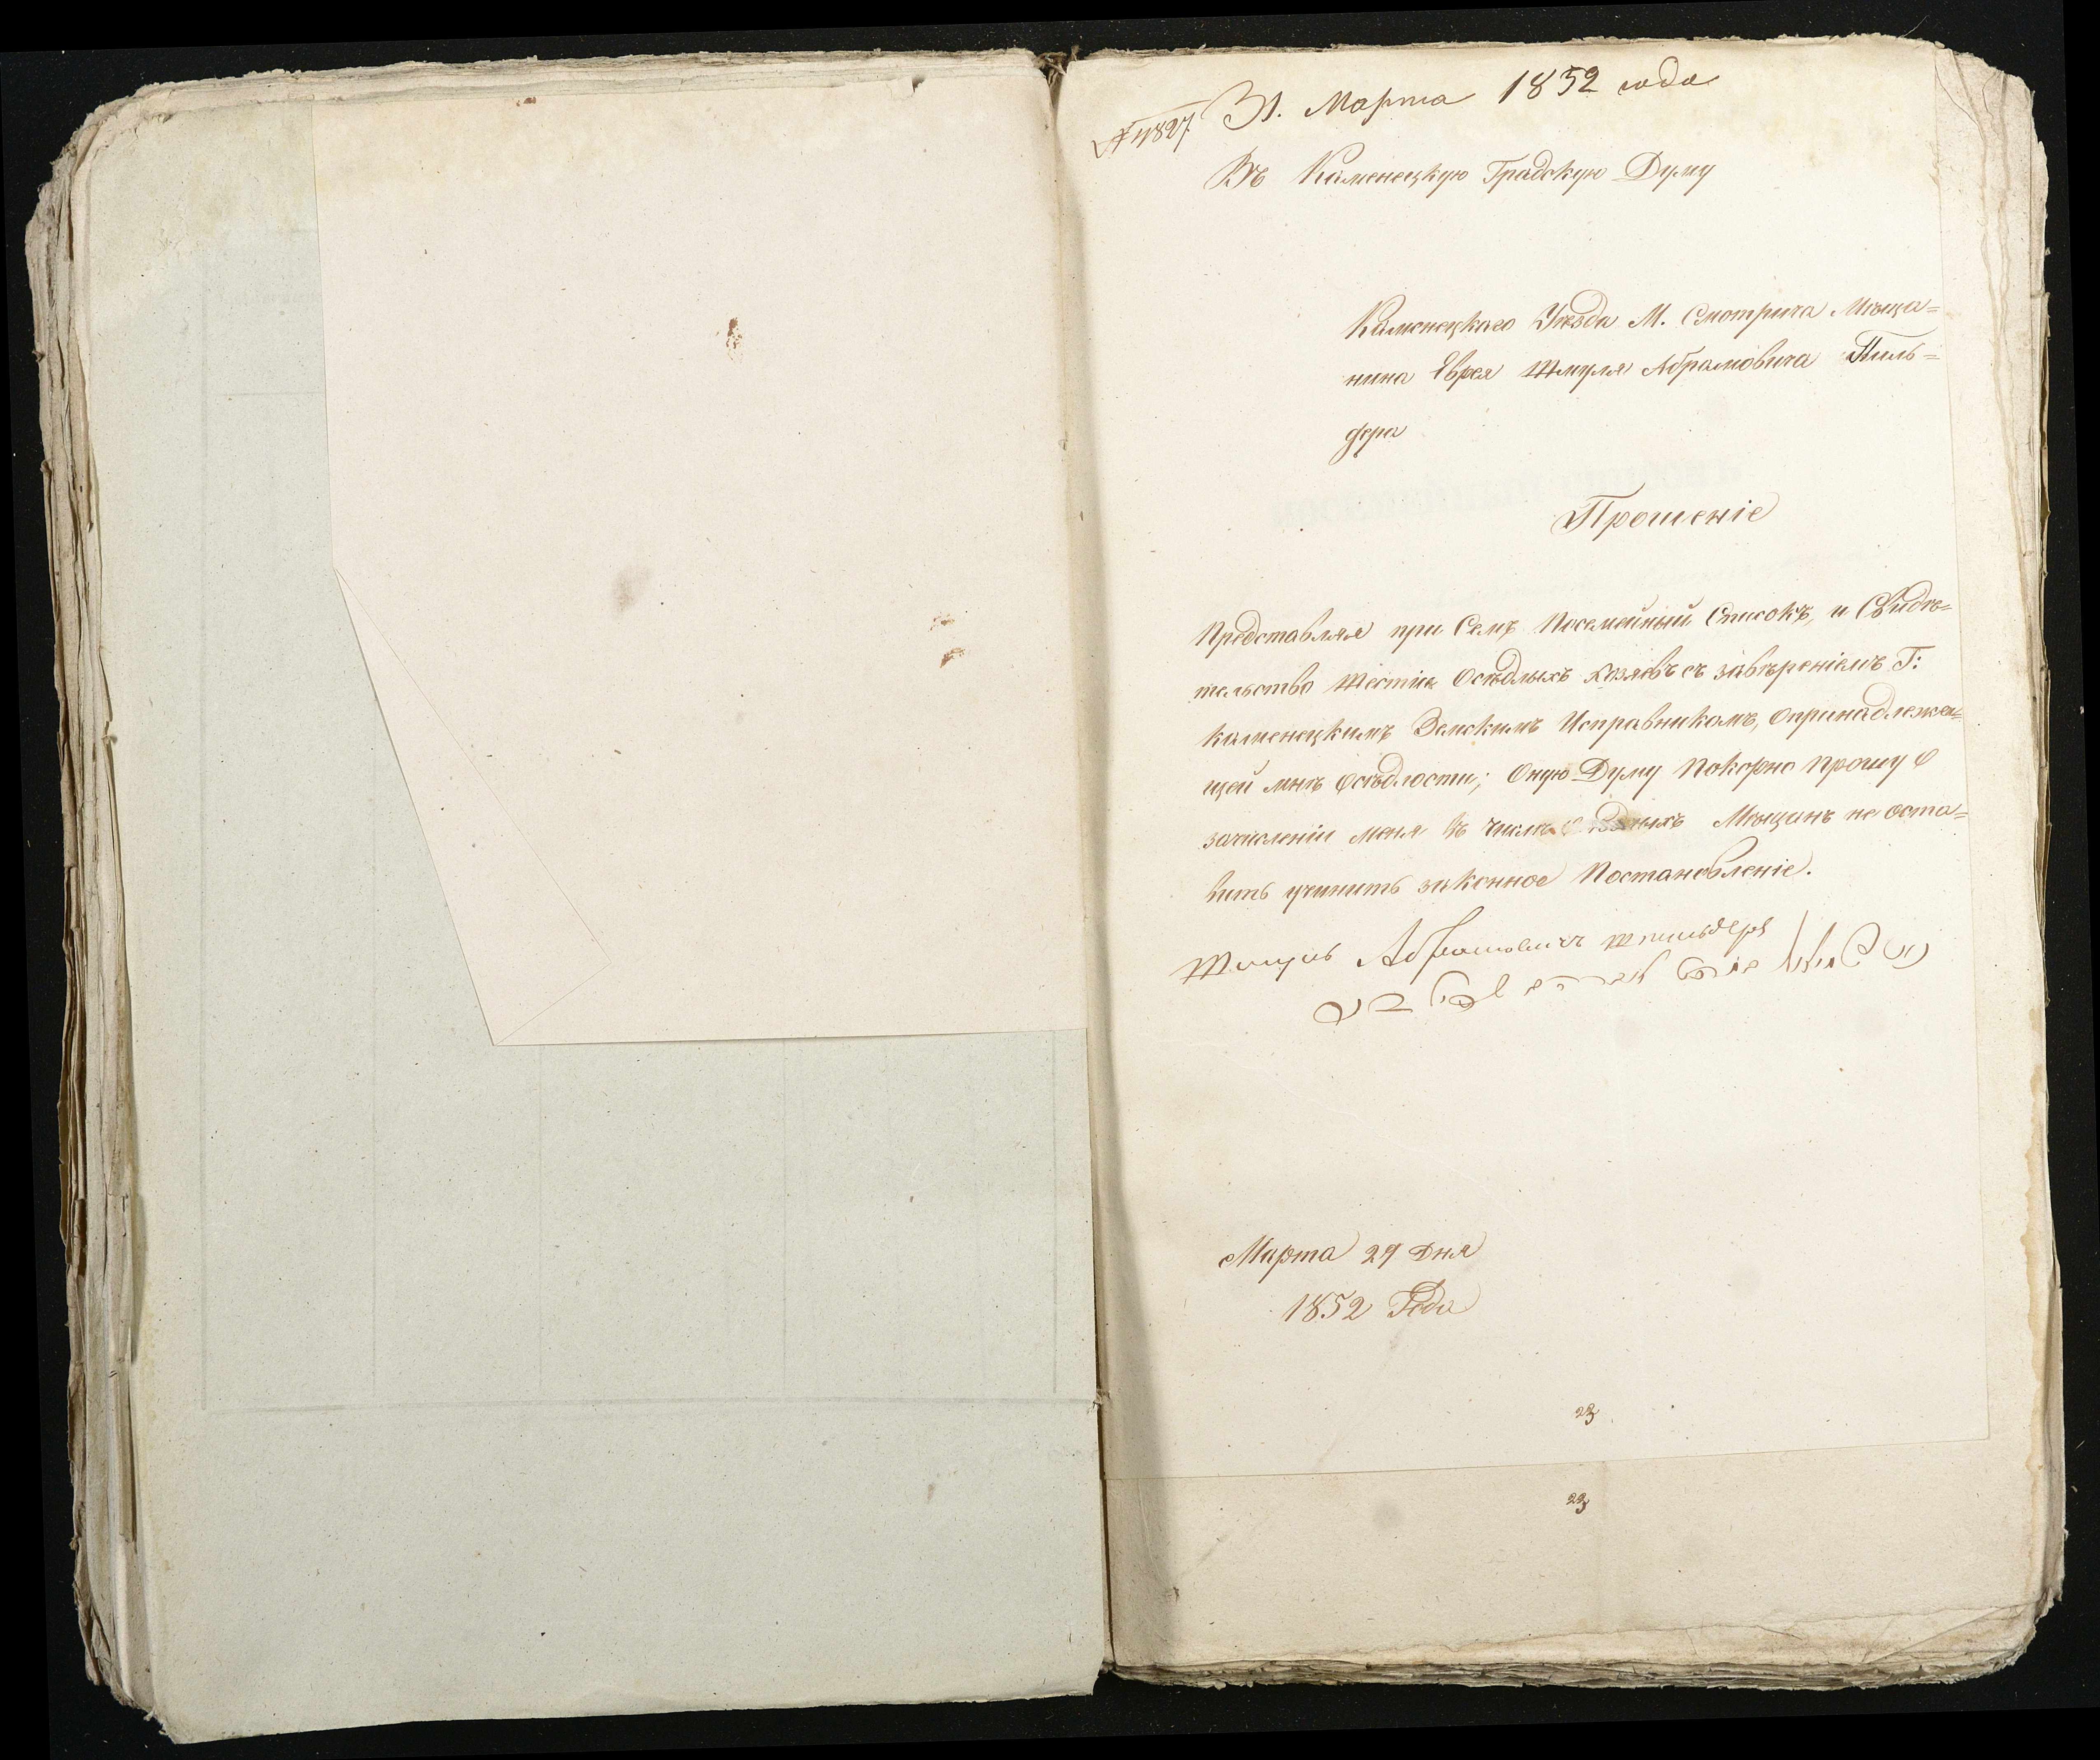 №4827. 31. Марта 1852 года
Въ Каменецкую Градскую Думу
Каменецкаго Уѣзда М. Смотрича Мѣща=
нина Еврея Шмуля Абрамовича
дера
Прошеніе
Представляя при Семъ Посемейный Списокъ, и Свидѣ=
тельство Шестіи Осѣдлыхъ хозяевъ съ завѣреніемъ Г:
Каменецкимъ Земскимъ Исправникомъ, опринадлежа=
щей мнѣ осѣдлости; Оную Думу Покорно Прошу о
зачисленіи меня въ число Мѣщанъ не оста=
вить учинить законное Постановленіе.
Шмуль Абрамовичъ
Марта 29 Дня
1852 Года
23
23